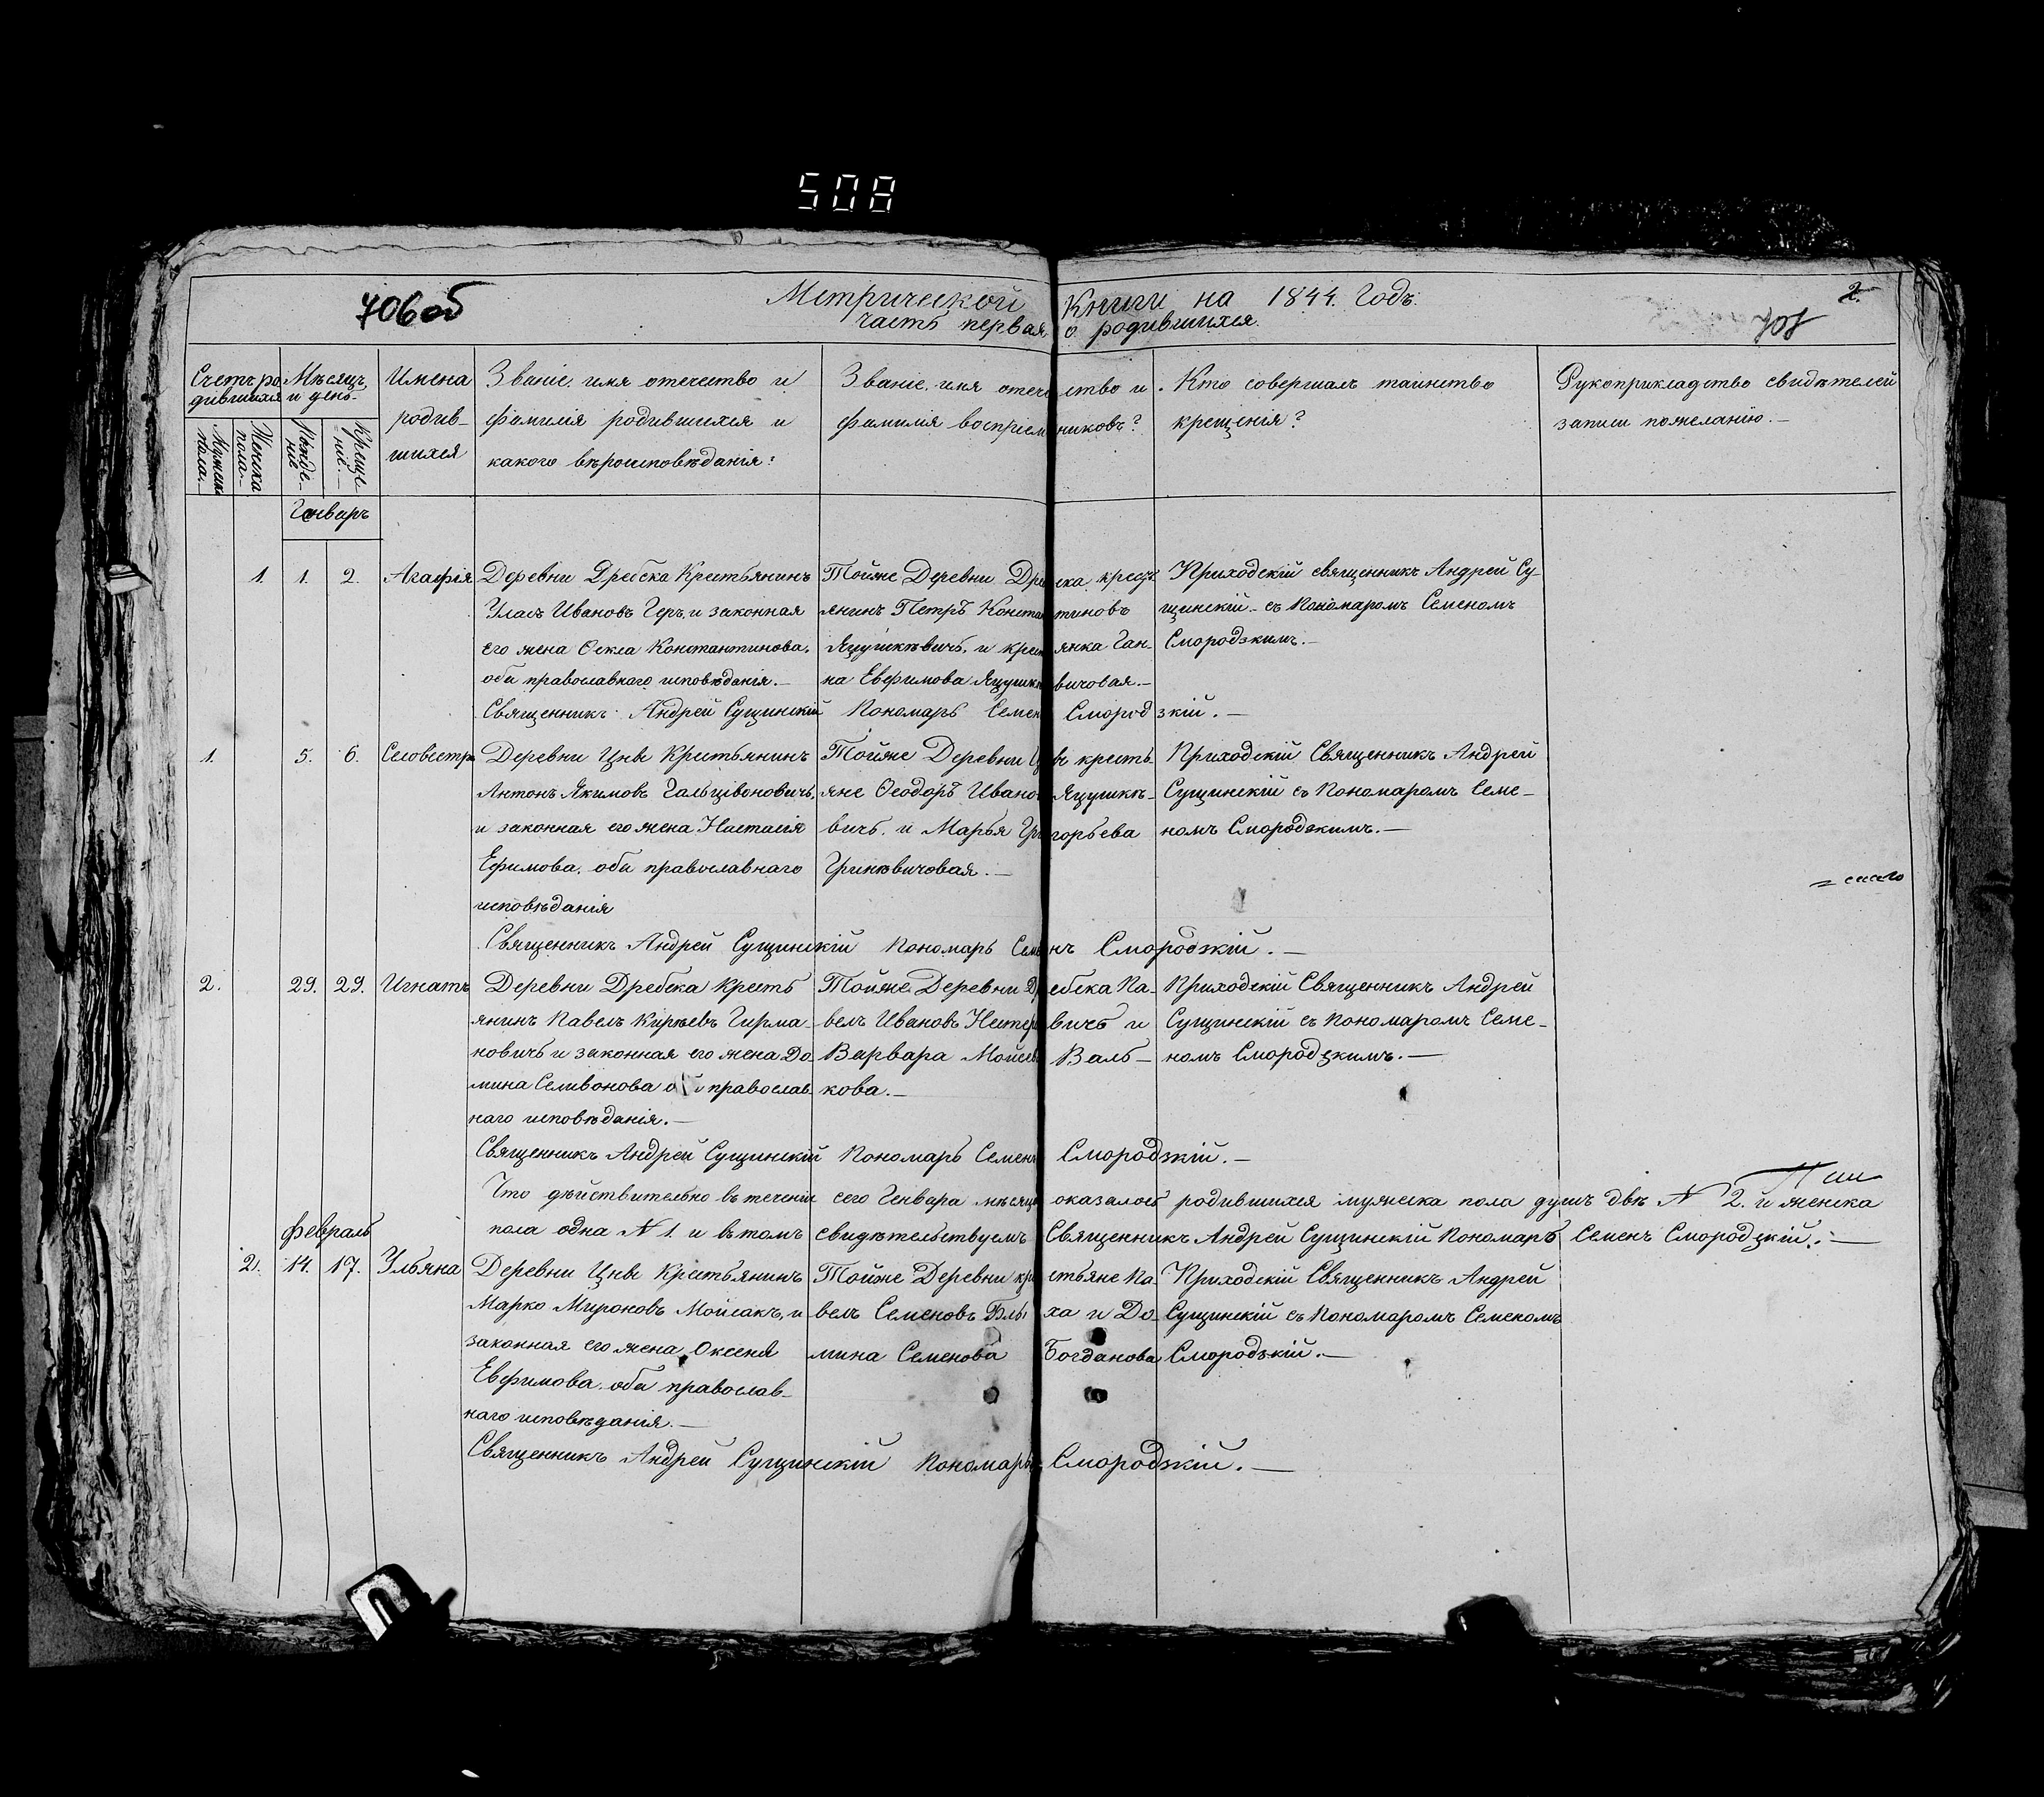 508
706об
Метрической Книги на 1844. Годъ.
часть первая о родившихся.
2.
707
Счетъ ро- дившихся
Мѣсяцъ, и день.
Имена родив- шихся
Званіе, имя отечество и фамилія родившихся и какого вѣроисповѣданія?
Званіе, имя отечество и фамилія воспріемниковъ?
Кто совершалъ таинство крещенія?
Рукоприкладство свидѣтелей записи пожеланію.—
Мужеска пола.—
Женска пола.—
Рожде- ніе—
Креще- ніе.—
Генварь
1. 1. 2. Агафія
Деревни Дребска Крестьянинъ
Уласъ Ивановъ Геръ, и законная
его жена Ѳекла Константинова,
оба православнаго исповѣданія.—
Тойже Деревни Дребска крестъ-
янинъ Петръ Константиновъ
Яцушкѣвичъ, и крестьянка Ган-
на Евфимова Яцушкѣвичовая.—
Приходскій священникъ Андрей Су-
щинскій съ Пономаромъ Семеномъ
Смородзкимъ.—
Священникъ Андрей Сущинскій Пономарь Семенъ Смородзкій.—
1. 5. 6. Селовестръ
Деревни Цны Крестьянинъ
Антонъ Якимовъ Гальцівоновичъ,
и законная его жена Настасія
Ефимова, оба православнаго
исповѣданія
Тойже Деревни Цны кресть-
яне Ѳеодоръ Ивановъ Яцушкѣ-
вичъ, и Марья Григорьева
Гринѣвичовая.—
Приходскій Священникъ Андрей
Сущинскій съ Пономаромъ Семе-
номъ Смородзкимъ.—
Священникъ Андрей Сущинскій Пономарь Семенъ Смородзкій.—
2. 29. 29. Игнатъ
Деревни Дребска Кресть
янинъ Павелъ Кирѣевъ Гирма-
новичъ и законная его жена До-
мина Селивонова оба православ-
наго исповѣданія.—
Тойже Деревни Дребска Па-
велъ Ивановъ Нестеровичъ и
Варвара Мойсѣева Валь-
кова.—
Приходскій Священникъ Андрей
Сущинскій съ Пономаромъ Семе-
номъ Смородзкимъ.—
Священникъ Андрей Сущинскій Пономарь Семенъ Смородзкій.—
Что дѣйствительно въ теченіи сего Генвара мѣсяца оказалось родившихся мужеска пола душъ двѣ N 2. и женска
пола одна N 1. и въ томъ свидѣтельствуемъ Священникъ Андрей Сущинскій Пономарь Семенъ Смородзкій.—
Февраль
2. 14. 17. Ульяна
Деревни Цны Крестьянинъ
Марко Мироновъ Мойсакъ, и
законная его жена Оксеня
Евфимова, оба православ-
наго исповѣданія.—
Тойже Деревни крестьяне Па-
велъ Семеновъ Блыха и До-
мина Семенова Богданова
Приходскій Священникъ Андрей
Сущинскій съ Пономаромъ Семеномъ
Смородзкій.—
Священникъ Андрей Сущинскій Пономарь Смородзкій.—